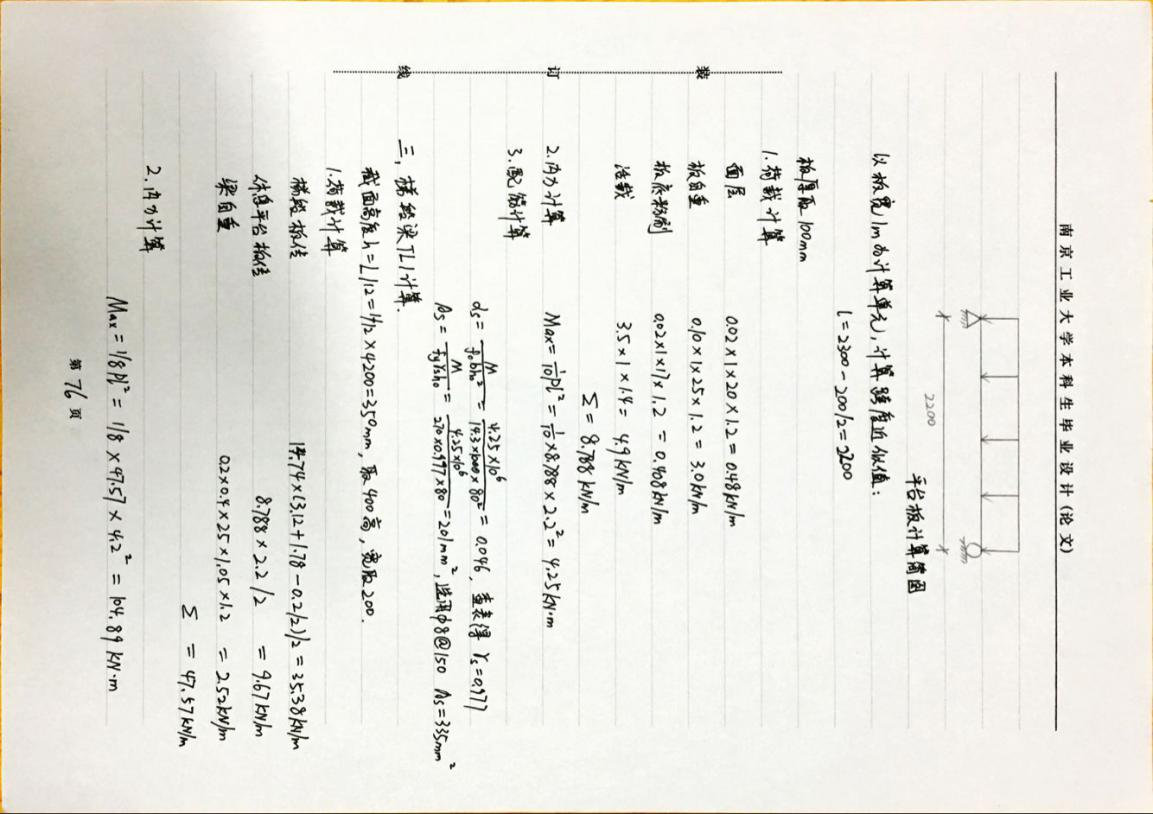 南京工业大学本科生毕业设计(论文)
2200
平台板计算简图
以板宽1m为计算单元,计算跨度近似值:
l=2300-200/2=2200
板厚取100mm
1.荷载计算
面层 0.02×1×20×1.2=0.48kN/m
板自重 0.10×1×25×1.2=3.0kN/m
板底粉刷 0.02×1×17×1.2=0.408kN/m
活载 3.5×1×1.4=4.9kN/m
Σ=8.788kN/m
2.内力计算 Max=1/10pl²=1/10×8.788×2.2²=4.25kN·m
3.配筋计算
αs=M/fcbh₀²=4.25×10⁶/14.3×1000×80²=0.046,查表得γs=0.977
As=M/fyγsh₀=4.25×10⁶/270×0.977×80=201mm²,选用φ8@150 As=335mm²
三,梯段梁TL1计算.
截面高度h=L/12=1/12×4200=350mm,取400高,宽取200.
1.荷载计算
梯段板传 14.74×(3.12+1.78-0.2/2)/2=35.38kN/m
休息平台板传 8.788×2.2/2=9.67kN/m
梁自重 0.2×0.4×25×1.05×1.2=2.52kN/m
Σ=47.57kN/m
2.内力计算
Max=1/8pl²=1/8×47.57×4.2²=104.89kN·m
第76页
装
订
线